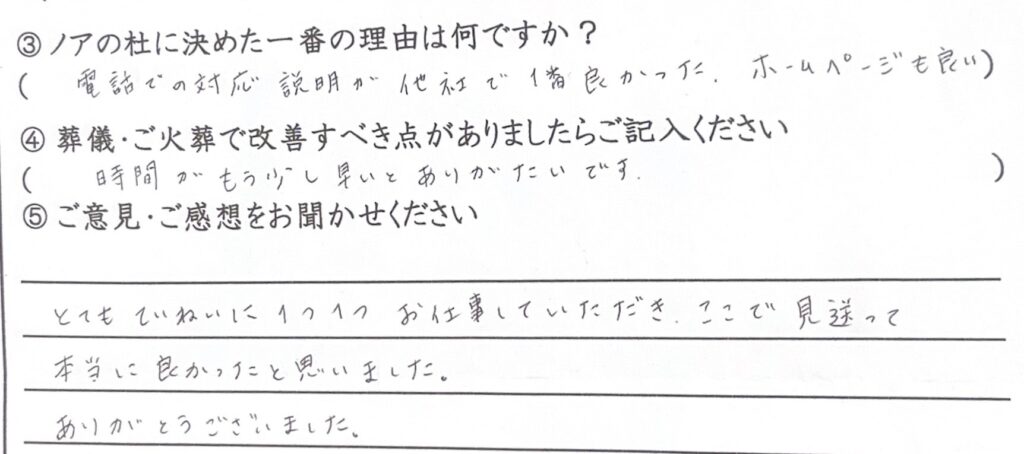 ③ ノアの杜に決めた一番の理由は何ですか？
( 電話での対応 説明が 他社で 1番 良かった. ホームページも良い)
④ 葬儀・ご火葬で改善すべき点がありましたらご記入ください
( 時間が もう少し 早いと ありがたいです. )
⑤ ご意見・ご感想をお聞かせください
とても ていねいに 1つ1つ お仕事していただき. ここで 見送って
本当に 良かったと思いました。
ありがとうございました。